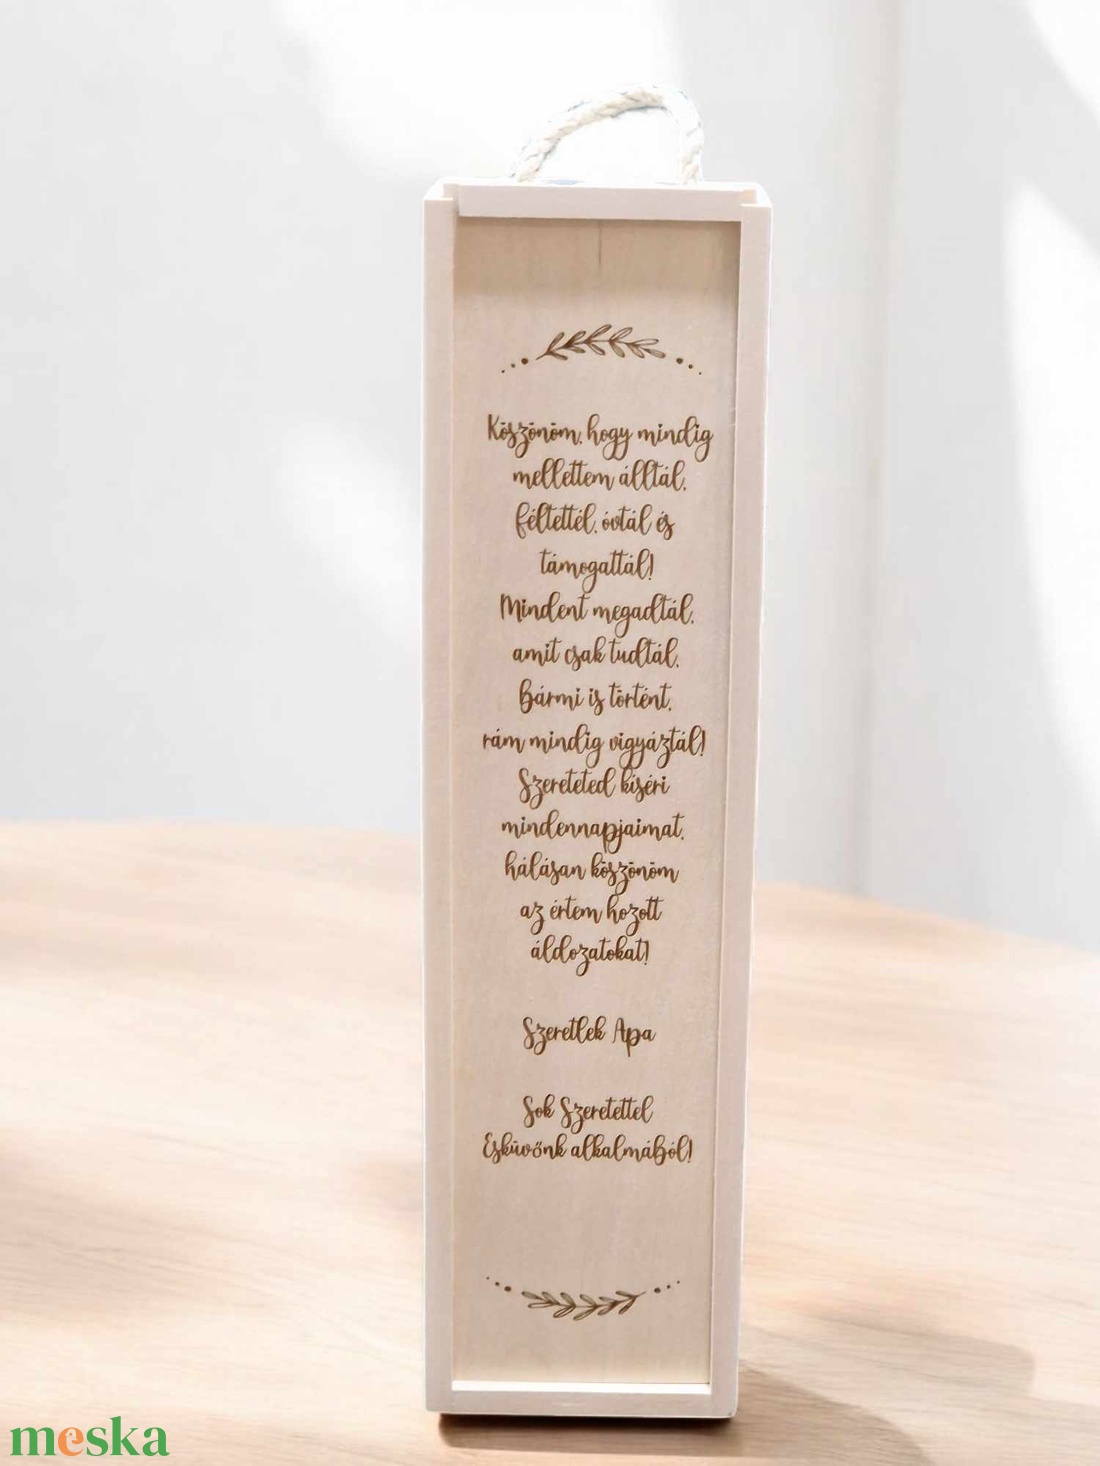 Köszönöm, hogy mindig
mellettem álltál,
féltettél, óvtál és
támogattál!
Mindent megadtál,
amit csak tudtál,
Bármi is történt,
rám mindig vigyáztál!
Szereteted kíséri
mindennapjaimat,
hálásan köszönöm
az értem hozott
áldozatokat!
Szeretlek Apa
Sok Szeretettel
Esküvőnk alkalmából!
meska